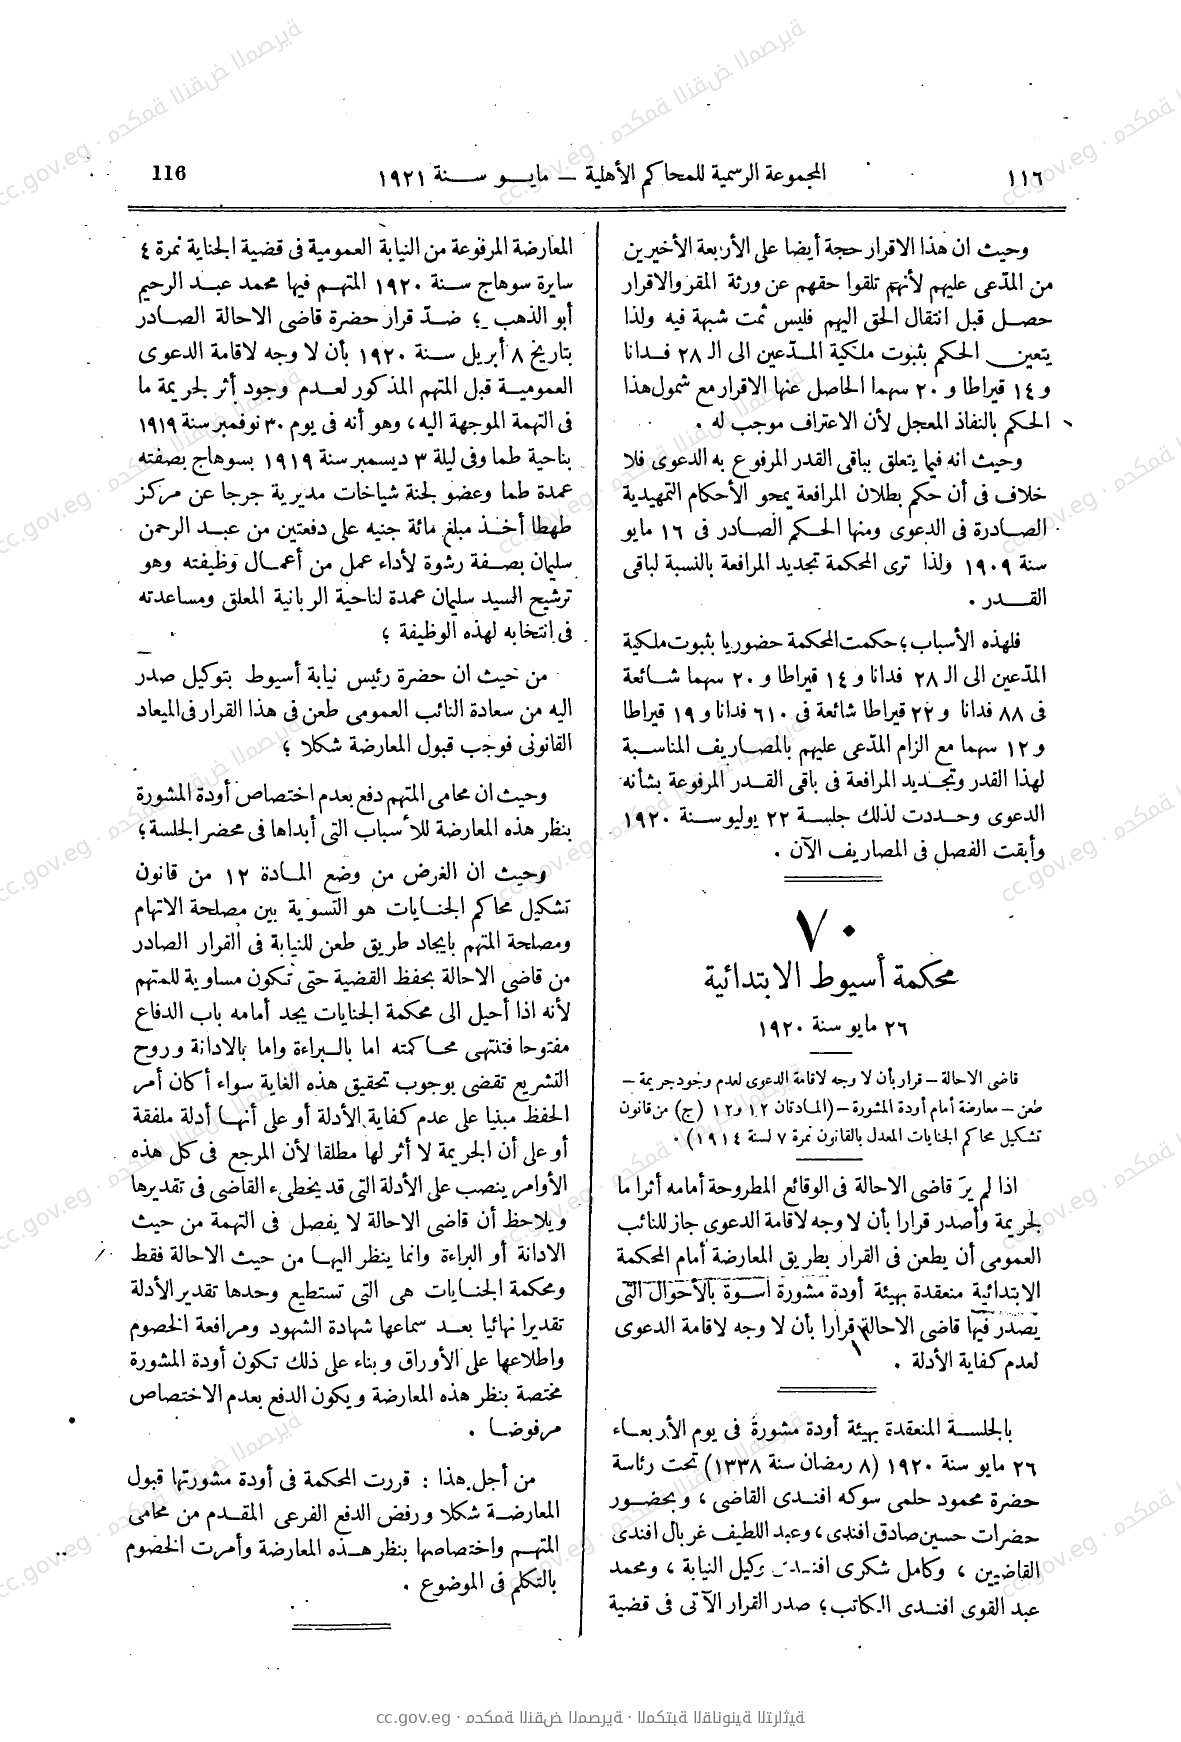 ١١٦ المجموعة الرسمية للمحاكم الأهلية – مايو سنة ١٩٢١ 116
وحيث ان هذا الاقرار حجة أيضا على الأربعة الأخيرين
من المدّعى عليهم لأنهم تلقوا حقهم عن ورثة المقر والاقرار
حصل قبل انتقال الحق اليهم فليس ثمت شبهة فيه ولذا
يتعين الحكم بثبوت ملكية المدّعين الى الـ ٢٨ فدانا
و ١٤ قيراطا و ٢٠ سهما الحاصل عنها الاقرار مع شمول هذا
الحكم بالنفاذ المعجل لأن الاعتراف موجب له .
وحيث انه فيما يتعلق بباقى القدر المرفوع به الدعوى فلا
خلاف فى أن حكم بطلان المرافعة يمحو الأحكام التمهيدية
الصادرة فى الدعوى ومنها الحكم الصادر فى ١٦ مايو
سنة ١٩٠٩ ولذا ترى المحكمة تجديد المرافعة بالنسبة لباقى
القدر .
فلهذه الأسباب ؛ حكمت المحكمة حضوريا بثبوت ملكية
المدّعين الى الـ ٢٨ فدانا و ١٤ قيراطا و ٢٠ سهما شائعة
فى ٨٨ فدانا و ٢٢ قيراطا شائعة فى ٦١٠ فدانا و ١٩ قيراطا
و ١٢ سهما مع الزام المدّعى عليهم بالمصاريف المناسبة
لهذا القدر وتجديد المرافعة فى باقى القدر المرفوعة بشأنه
الدعوى وحددت لذلك جلسة ٢٢ يوليو سنة ١٩٢٠
وأبقت الفصل فى المصاريف الآن .
٧٠
محكمة أسيوط الابتدائية
٢٦ مايو سنة ١٩٢٠
قاضى الاحالة – قرار بأن لا وجه لاقامة الدعوى لعدم وجود جريمة –
طعن – معارضة أمام أودة المشورة – (المادتان ١٢ و١٢ (ج) من قانون
تشكيل محاكم الجنايات المعدل بالقانون نمرة ٧ لسنة ١٩١٤) .
اذا لم يرَ قاضى الاحالة فى الوقائع المطروحة أمامه أثرا ما
لجريمة وأصدر قرارا بأن لا وجه لاقامة الدعوى جاز للنائب
العمومى أن يطعن فى القرار بطريق المعارضة أمام المحكمة
الابتدائية منعقدة بهيئة أودة مشورة اسوة بالأحوال التى
يصدر فيها قاضى الاحالة قرارا بأن لا وجه لاقامة الدعوى
لعدم كفاية الأدلة .
بالجلسة المنعقدة بهيئة أودة مشورة فى يوم الأربعاء
٢٦ مايو سنة ١٩٢٠ (٨ رمضان سنة ١٣٣٨) تحت رئاسة
حضرة محمود حلمى سوكه افندى القاضى ، وبحضور
حضرات حسين صادق افندى ، وعبد اللطيف غربال افندى
القاضيين ، وكامل شكرى افندى وكيل النيابة ، ومحمد
عبد القوى افندى الكاتب ؛ صدر القرار الآتى فى قضية
المعارضة المرفوعة من النيابة العمومية فى قضية الجناية نمرة ٤
سايرة سوهاج سنة ١٩٢٠ المتهم فيها محمد عبد الرحيم
أبو الذهب ؛ ضدّ قرار حضرة قاضى الاحالة الصادر
بتاريخ ٨ أبريل سنة ١٩٢٠ بأن لا وجه لاقامة الدعوى
العمومية قبل المتهم المذكور لعدم وجود أثر لجريمة ما
فى التهمة الموجهة اليه ، وهو أنه فى يوم ٣٠ نوفمبر سنة ١٩١٩
بناحية طما وفى ليلة ٣ ديسمبر سنة ١٩١٩ بسوهاج بصفته
عمدة طما وعضو لجنة شياخات مديرية جرجا عن مركز
طهطا أخذ مبلغ مائة جنيه على دفعتين من عبد الرحمن
سليمان بصفة رشوة لأداء عمل من أعمال وظيفته وهو
ترشيح السيد سليمان عمدة لناحية الربانية المعلق ومساعدته
فى انتخابه لهذه الوظيفة ؛
من حيث ان حضرة رئيس نيابة أسيوط بتوكيل صدر
اليه من سعادة النائب العمومى طعن فى هذا القرار فى الميعاد
القانونى فوجب قبول المعارضة شكلا ؛
وحيث ان محامى المتهم دفع بعدم اختصاص أودة المشورة
بنظر هذه المعارضة للأسباب التى أبداها فى محضر الجلسة ؛
وحيث ان الغرض من وضع المادة ١٢ من قانون
تشكيل محاكم الجنايات هو التسوية بين مصلحة الاتهام
ومصلحة المتهم بايجاد طريق طعن للنيابة فى القرار الصادر
من قاضى الاحالة بحفظ القضية حتى تكون مساوية للمتهم
لأنه اذا أحيل الى محكمة الجنايات يجد أمامه باب الدفاع
مفتوحا فتنتهى محاكمته اما بالبراءة واما بالادانة وروح
التشريع تقضى بوجوب تحقيق هذه الغاية سواء أكان أمر
الحفظ مبنيا على عدم كفاية الأدلة أو على أنها أدلة ملفقة
أو على أن الجريمة لا أثر لها مطلقا لأن المرجع فى كل هذه
الأوامر ينصب على الأدلة التى قد يخطىء القاضى فى تقديرها
ويلاحظ أن قاضى الاحالة لا يفصل فى التهمة من حيث
الادانة أو البراءة وانما ينظر اليها من حيث الاحالة فقط
ومحكمة الجنايات هى التى تستطيع وحدها تقدير الأدلة
تقديرا نهائيا بعد سماعها شهادة الشهود ومرافعة الخصوم
واطلاعها على الأوراق وبناء على ذلك تكون أودة المشورة
مختصة بنظر هذه المعارضة ويكون الدفع بعدم الاختصاص
مرفوضا .
من أجل هذا : قررت المحكمة فى أودة مشورتها قبول
المعارضة شكلا ورفض الدفع الفرعى المقدم من محامى
المتهم واختصاصها بنظر هذه المعارضة وأمرت الخصوم
بالتكلم فى الموضوع .
cc.gov.eg · محكمة النقض المصرية · المكتبة القانونية التراثية